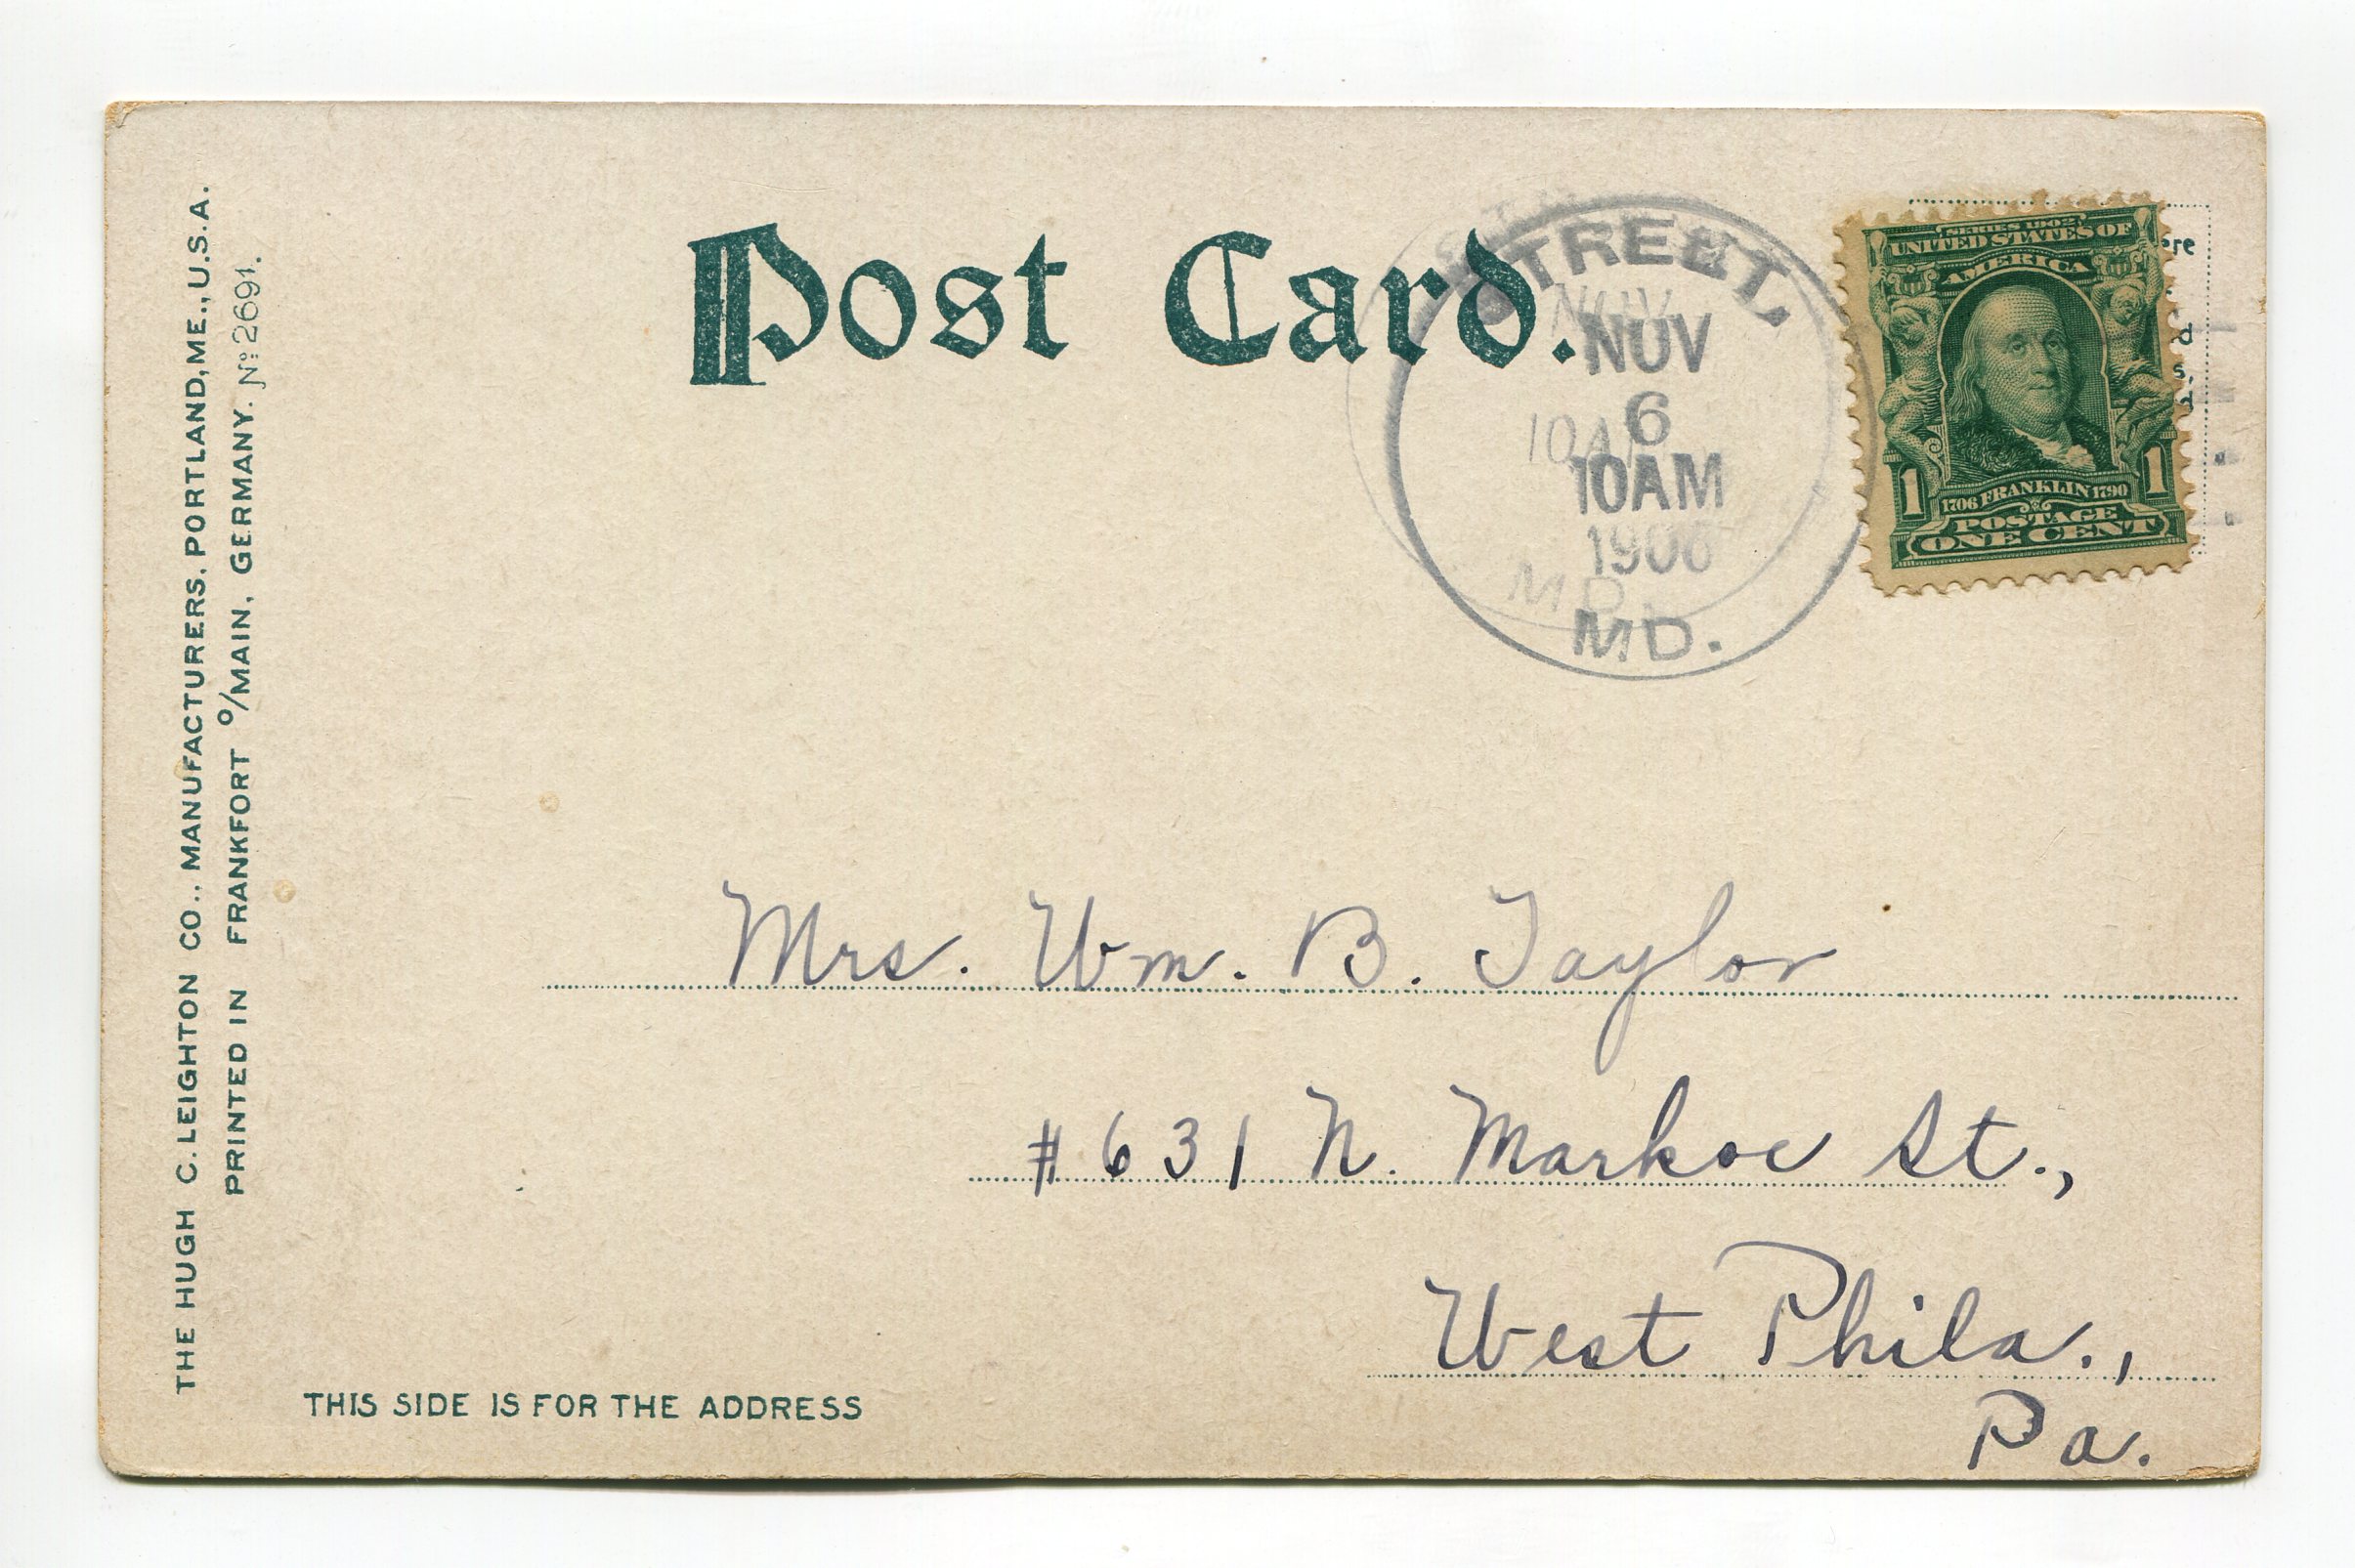 THE HUGH C. LEIGHTON CO., MANUFACTURERS, PORTLAND, ME., U.S.A.
PRINTED IN FRANKFORT o/MAIN, GERMANY. No 2691.
Post Card.
STREET,
NOV
6
10AM
1906
MD.
SERIES 1902
UNITED STATES OF
AMERICA
1 1
1706 FRANKLIN 1790
POSTAGE
ONE CENT
Mrs. Wm. B. Taylor
#631 N. Markoe St.,
West Phila.,
Pa.
THIS SIDE IS FOR THE ADDRESS